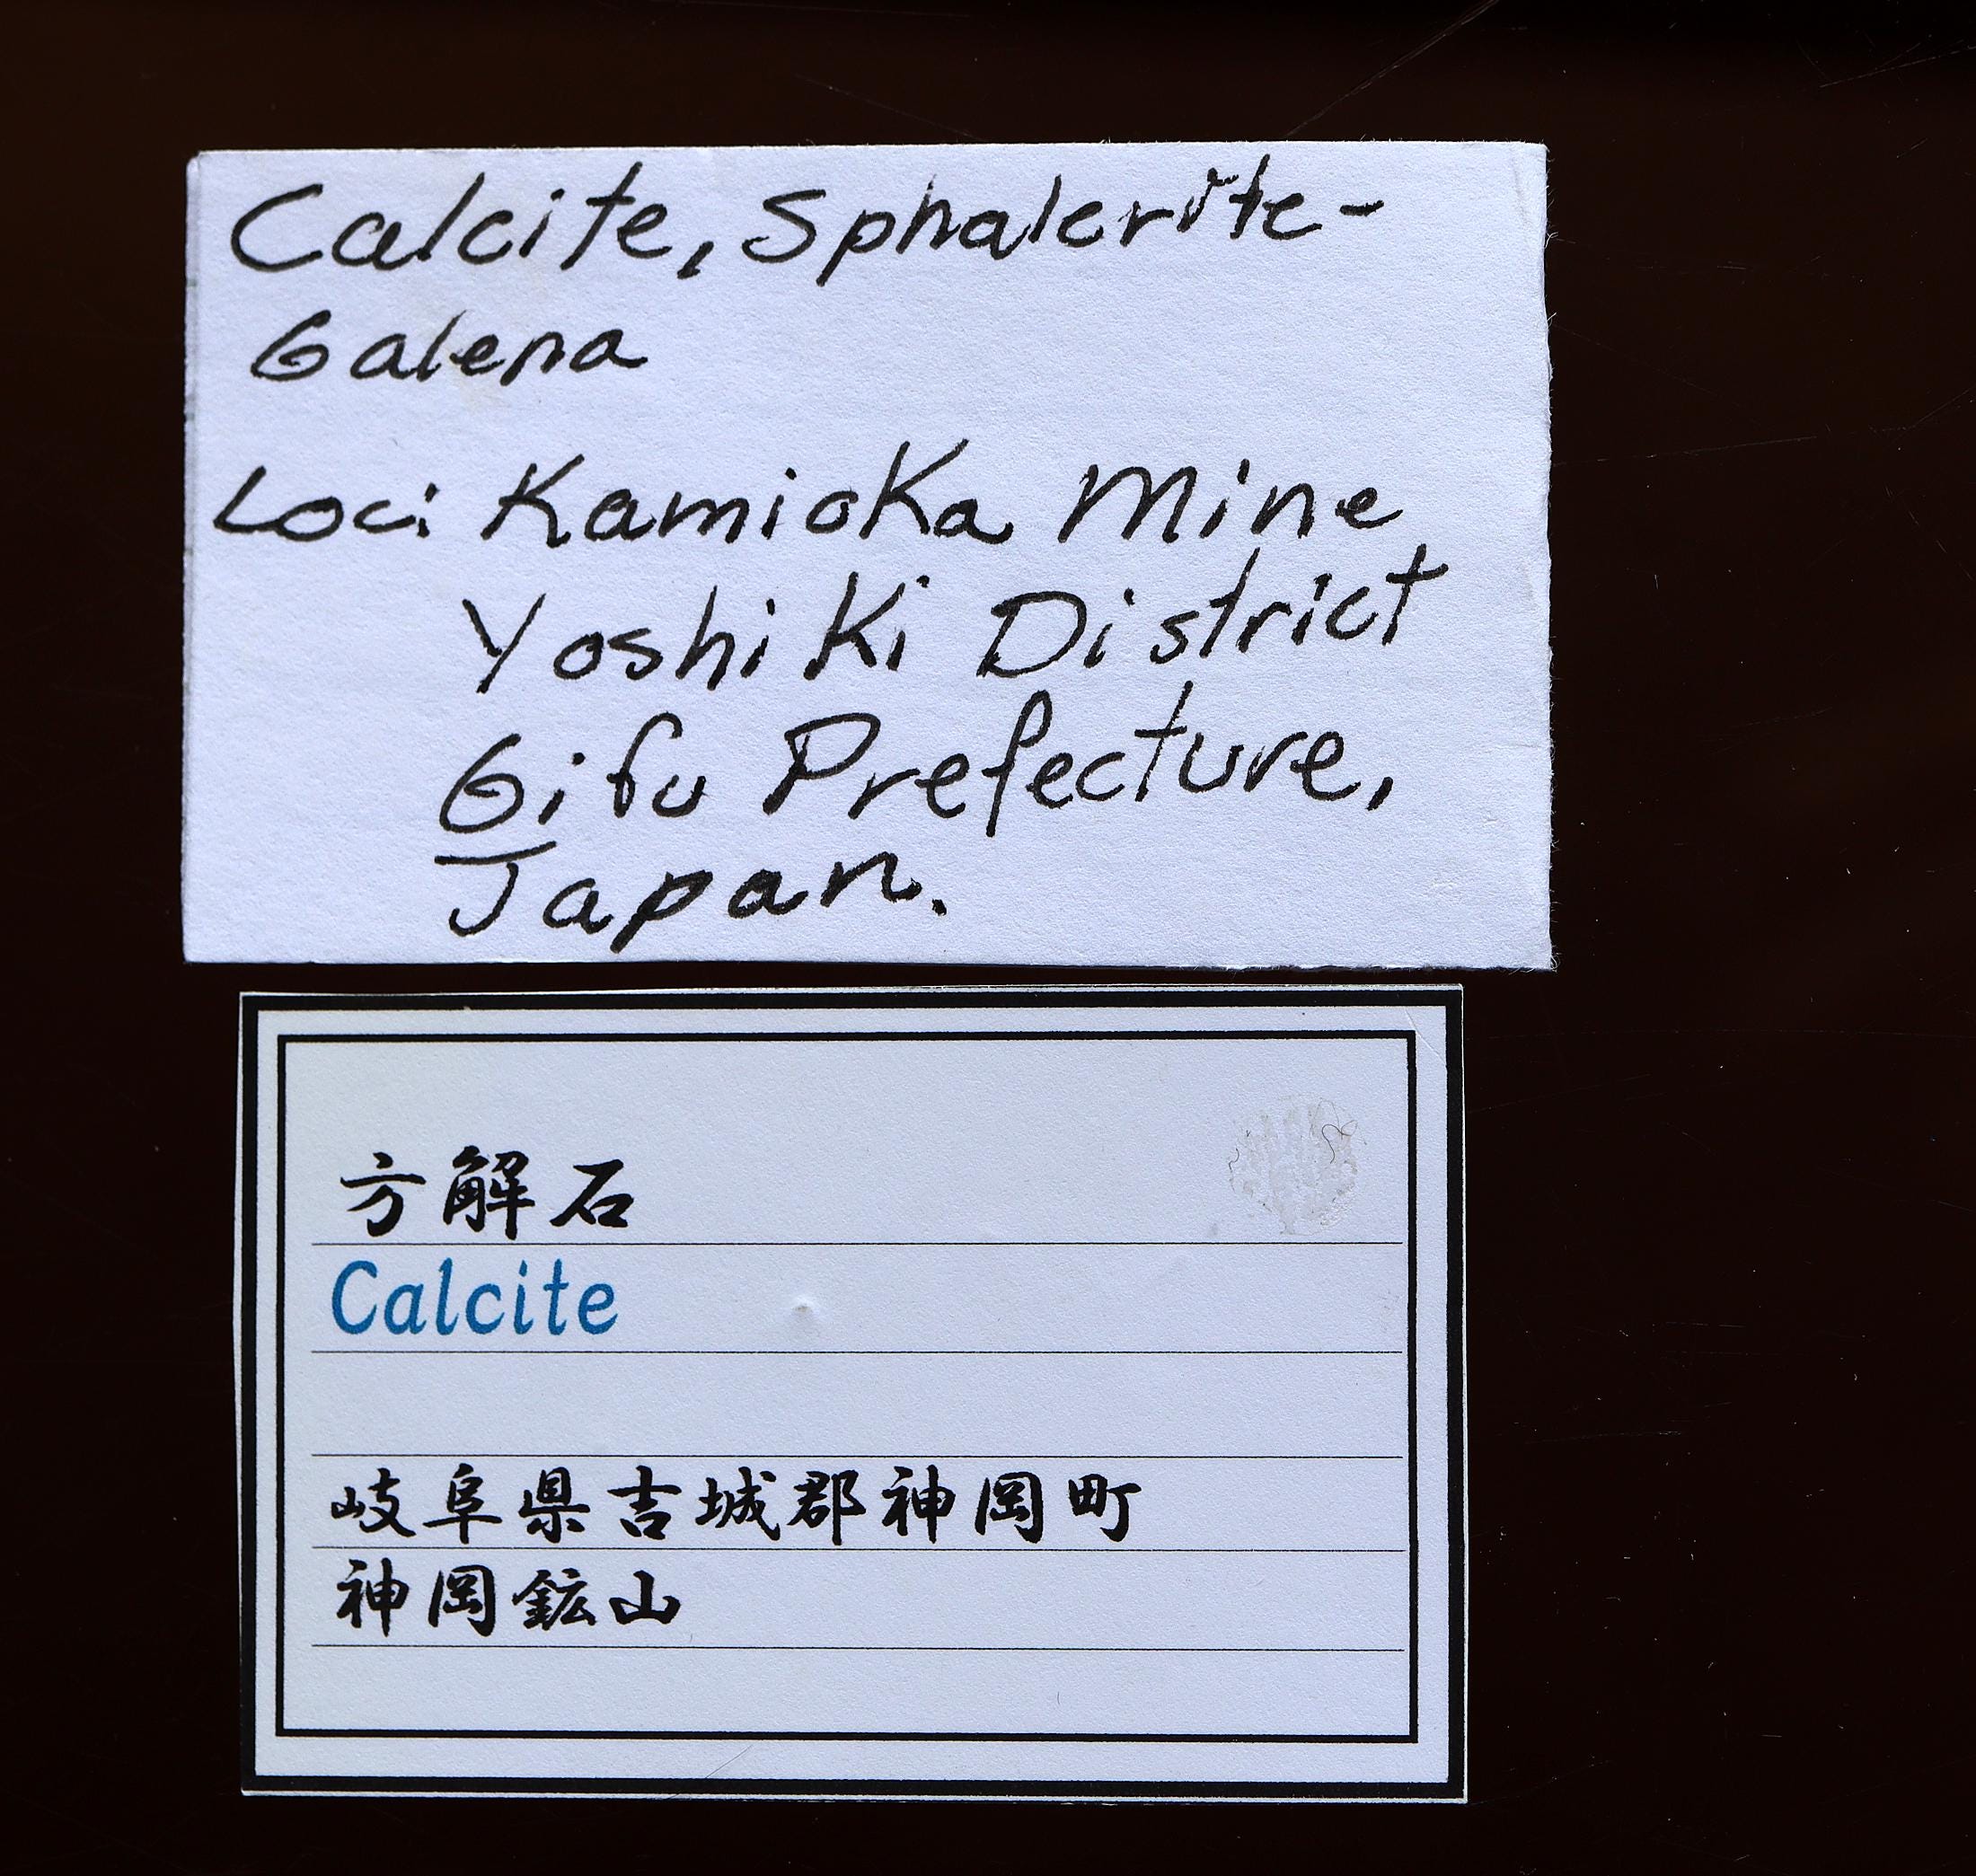 Calcite, Sphalerite-
Galena
Loc: Kamioka Mine
Yoshiki District
Gifu Prefecture,
Japan.
方解石
Calcite
岐阜県吉城郡神岡町
神岡鉱山